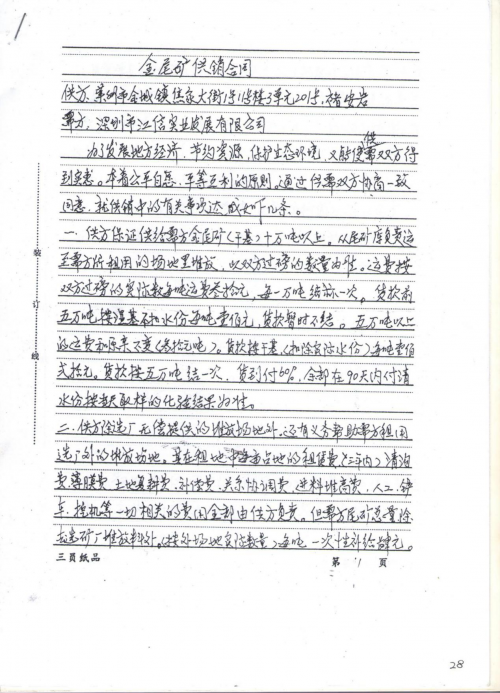 金尾矿供销合同
供方、莱州市金城镇焦家大街1号1号楼3单元201号，褚安岩
需方，深圳市江信实业发展有限公司
为了发展地方经济，节约资源，保护生态环境，又能使供需双方得
到实惠。本着公平自愿，平等互利的原则，通过供需双方协商一致
同意，就供销中的有关事项达成如下几条。
一、供方保证供给需方金尾矿（干基）十万吨以上。从尾矿库负责运
至需方所租用的场地里堆放，以双方过磅的数量为准。运费按
双方过磅的实际数每吨运费叁拾元，每一万吨结算一次。货款前
五万吨按湿基扣水份每吨壹佰元，货款暂时不结。五万吨以上
的运费和原来不变（叁拾元吨）。货款按干基（扣除实际水份）每吨壹佰
式拾元。货款按五万吨结一次，货到付60%，余部在90天内付清
水份按者取样的化验结果为准。
二、供方除选厂无偿提供的堆放场地外，还有义务帮助需方租用
选厂外的堆放场地。其在租地占地的租赁费（三年内）清泊
费薄膜费，土地复耕费，补偿费，关系协调费，进料堆高费，人工，铲
车，挖机等一切相关的费用全部由供方负责。但需方尾矿总量除
去选矿厂堆放料外。（按外场地实际数量）每吨一次性补给肆元。
三员纸品
第 1 页
装
订
线
28